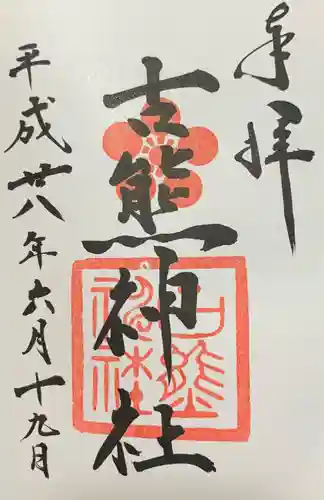 奉拝
古熊神社
古熊神社
平成廿八年六月十九日